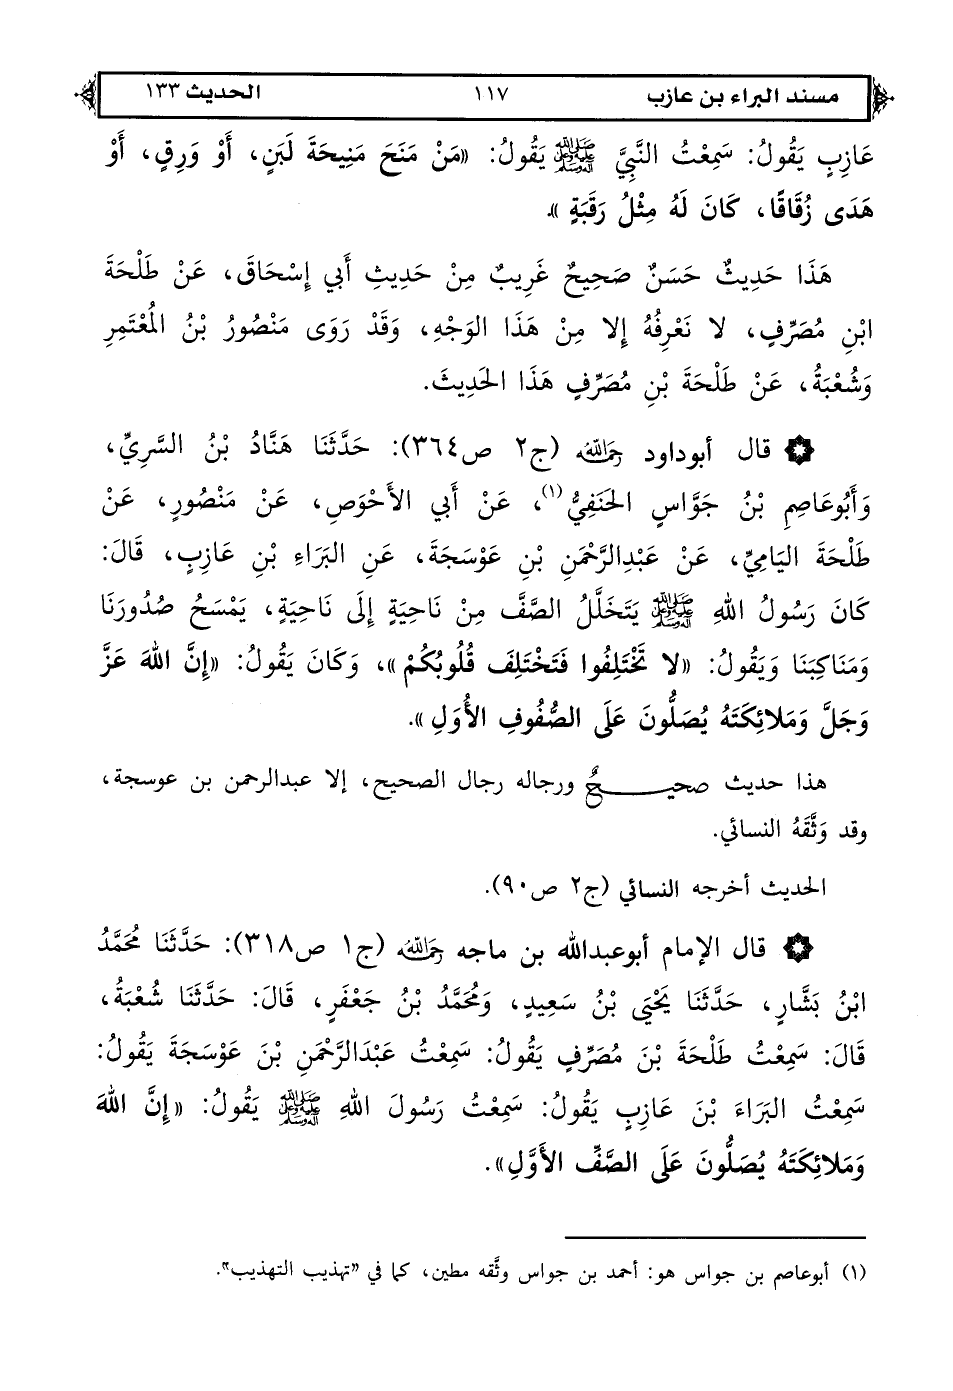 مسند البراء بن عازب ١١٧ الحديث ١٣٣
عَازِبٍ يَقُولُ: سَمِعْتُ النَّبِيَّ ﷺ يَقُولُ: «مَنْ مَنَحَ مَنِيحَةَ لَبَنٍ، أَوْ وَرِقٍ، أَوْ
هَدَى زُقَاقًا، كَانَ لَهُ مِثْلُ رَقَبَةٍ».
هَذَا حَدِيثٌ حَسَنٌ صَحِيحٌ غَرِيبٌ مِنْ حَدِيثِ أَبِي إِسْحَاقَ، عَنْ طَلْحَةَ
ابْنِ مُصَرِّفٍ، لا نَعْرِفُهُ إِلا مِنْ هَذَا الوَجْهِ، وَقَدْ رَوَى مَنْصُورُ بْنُ المُعْتَمِرِ
وَشُعْبَةُ، عَنْ طَلْحَةَ بْنِ مُصَرِّفٍ هَذَا الحَدِيثَ.
قال أبوداود رحمه الله (ج٢ ص٣٦٤): حَدَّثَنَا هَنَّادُ بْنُ السَّرِيِّ،
وَأَبُوعَاصِمِ بْنُ جَوَّاسٍ الحَنَفِيُّ(١)، عَنْ أَبِي الأَحْوَصِ، عَنْ مَنْصُورٍ، عَنْ
طَلْحَةَ اليَامِيِّ، عَنْ عَبْدِالرَّحْمَنِ بْنِ عَوْسَجَةَ، عَنِ البَرَاءِ بْنِ عَازِبٍ، قَالَ:
كَانَ رَسُولُ اللهِ ﷺ يَتَخَلَّلُ الصَّفَّ مِنْ نَاحِيَةٍ إِلَى نَاحِيَةٍ، يَمْسَحُ صُدُورَنَا
وَمَنَاكِبَنَا وَيَقُولُ: «لا تَخْتَلِفُوا فَتَخْتَلِفَ قُلُوبُكُمْ»، وَكَانَ يَقُولُ: «إِنَّ اللهَ عَزَّ
وَجَلَّ وَمَلائِكَتَهُ يُصَلُّونَ عَلَى الصُّفُوفِ الأُوَلِ».
هذا حديث صحيحٌ ورجاله رجال الصحيح، إلا عبدالرحمن بن عوسجة،
وقد وَثَّقَهُ النسائي.
الحديث أخرجه النسائي (ج٢ ص٩٠).
قال الإمام أبوعبدالله بن ماجه رحمه الله (ج١ ص٣١٨): حَدَّثَنَا مُحَمَّدُ
ابْنُ بَشَّارٍ، حَدَّثَنَا يَحْيَى بْنُ سَعِيدٍ، وَمُحَمَّدُ بْنُ جَعْفَرٍ، قَالَ: حَدَّثَنَا شُعْبَةُ،
قَالَ: سَمِعْتُ طَلْحَةَ بْنَ مُصَرِّفٍ يَقُولُ: سَمِعْتُ عَبْدَالرَّحْمَنِ بْنَ عَوْسَجَةَ يَقُولُ:
سَمِعْتُ البَرَاءَ بْنَ عَازِبٍ يَقُولُ: سَمِعْتُ رَسُولَ اللهِ ﷺ يَقُولُ: «إِنَّ اللهَ
وَمَلائِكَتَهُ يُصَلُّونَ عَلَى الصَّفِّ الأَوَّلِ».
(١) أبوعاصم بن جواس هو: أحمد بن جواس وثَّقه مطين، كما في "تهذيب التهذيب".